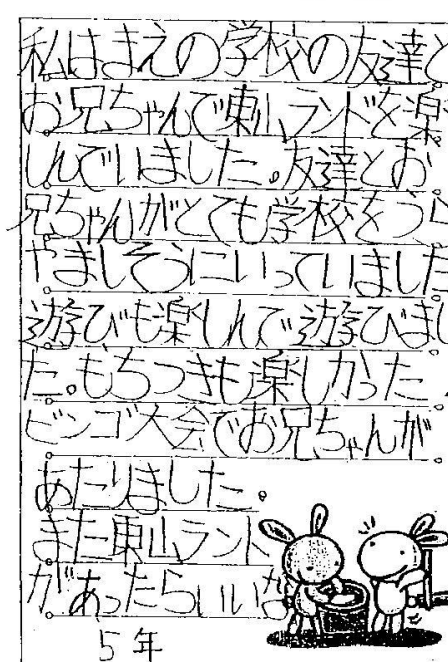 私はまえの学校の友達と
お兄ちゃんで東山ランドを楽
しんでいました。友達とお
兄ちゃんがとても学校をうら
やましそうにいっていました
遊びも楽しんで遊びまし
た。もちつきも楽しかった。
ビンゴ大会でお兄ちゃんが
あたりました。
また東山ランド
があったらいいな
5年